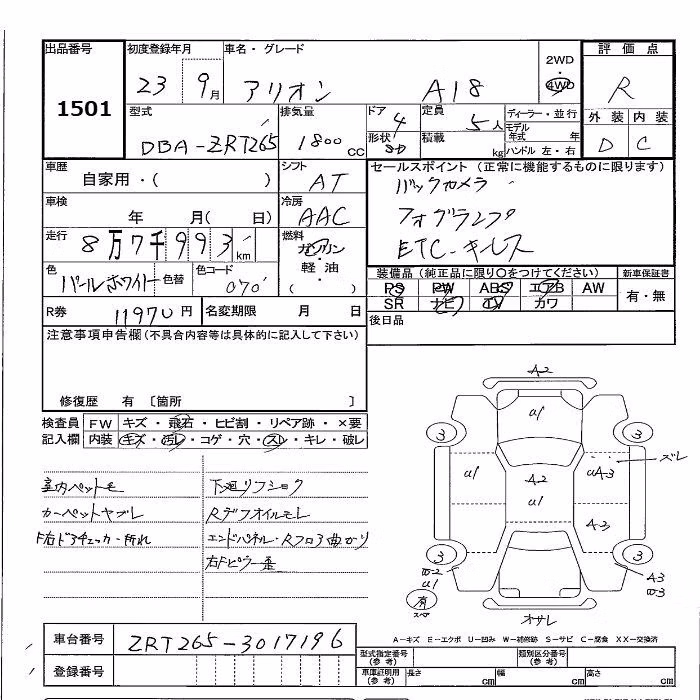 出品番号
1501
初度登録年月
23 9月
車名・グレード
アリオン A18
2WD
・
4WD
評価点
R
外装 内装
D C
型式
DBA-ZRT265
排気量
1800 CC
ドア 4
形状 SD
定員 5人
積載 kg
ディーラー・並行
モデル年式 年
ハンドル 左・右
車歴
自家用・( )
シフト
AT
車検
年 月( 日)
冷房
AAC
走行
8万7千993km
燃料
ガソリン
・
軽油
( )
色
パールホワイト 色替
色コード
070
セールスポイント(正常に機能するものに限ります)
バックカメラ
フォグランプ
ETC・キーレス
装備品(純正品に限り○をつけてください)
PS PW ABS エアB AW
SR ナビ TV カワ
新車保証書
有・無
R券 11970円
名変期限 月 日
後日品
注意事項申告欄(不具合内容等は具体的に記入して下さい)
修復歴 有 〔箇所 〕
検査員記入欄
FW キズ・飛石・ヒビ割・リペア跡・×要
内装 キズ・汚レ・コゲ・穴・スレ・キレ・破レ
室内ペットモ
カーペットヤブレ
F右ドアチェッカー折れ
下廻リフショク
Rデフオイルモレ
エンドパネル・Rフロア曲がり
右Fピラー歪
A-2
U1
3 3
U1 A-2 UA-3 ズレ
U1
A-3
3 3
W-2
U1
A3
W3
有
スペア
オサレ
A-キズ E-エクボ U-凹み W-補修跡 S-サビ C-腐食 XX-交換済
車台番号
ZRT265-3017196
登録番号
型式指定番号(参考)
類別区分番号(参考)
車庫証明用(参考)
長さ cm
幅 cm
高さ cm